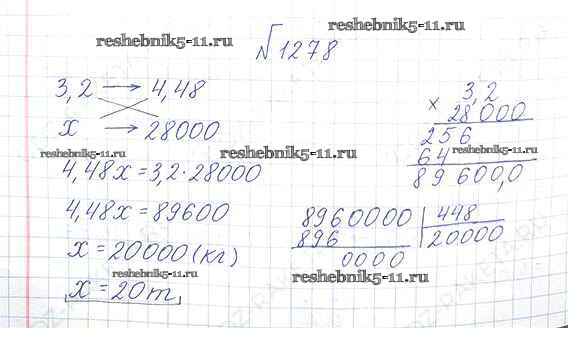 reshebnik5-11.ru
№1278
reshebnik5-11.ru
3,2 → 4,48
x → 28000
reshebnik5-11.ru
4,48x = 3,2 · 28000
4,48x = 89600
x = 20000 (кг)
reshebnik5-11.ru
x = 20 т
reshebnik5-11.ru
× 3,2
28000
256
64
reshebnik5-11.ru
89600,0
8960000 | 448
896 20000
0000
reshebnik5-11.ru